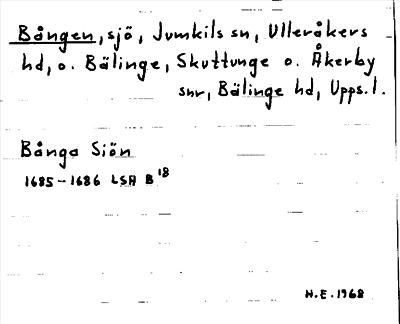 Bången, sjö, Jumkils sn, Ulleråkers
hd, o. Bälinge, Skuttunge o. Åkerby
snr, Bälinge hd, Upps. l.
Bånga Siön
1685-1686 LSA B 18
H.E. 1968